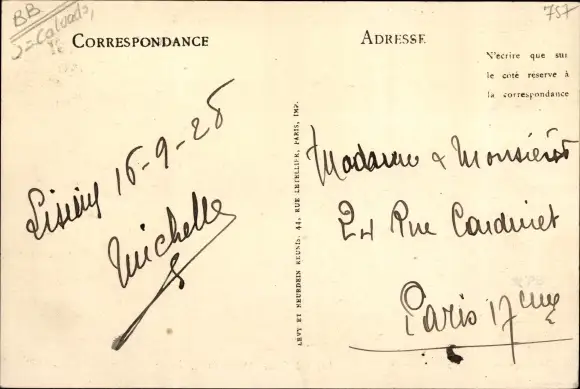 BB
Calvados,
757
CORRESPONDANCE
ADRESSE
N'écrire que sur
le côté réservé à
la correspondance
Lisieux 16-9-28
Michelle
LEVY ET NEURDEIN REUNIS, 44, RUE LETELLIER, PARIS, IMP.
Madame & Monsieur
24 Rue Cardinet
Paris 17eme